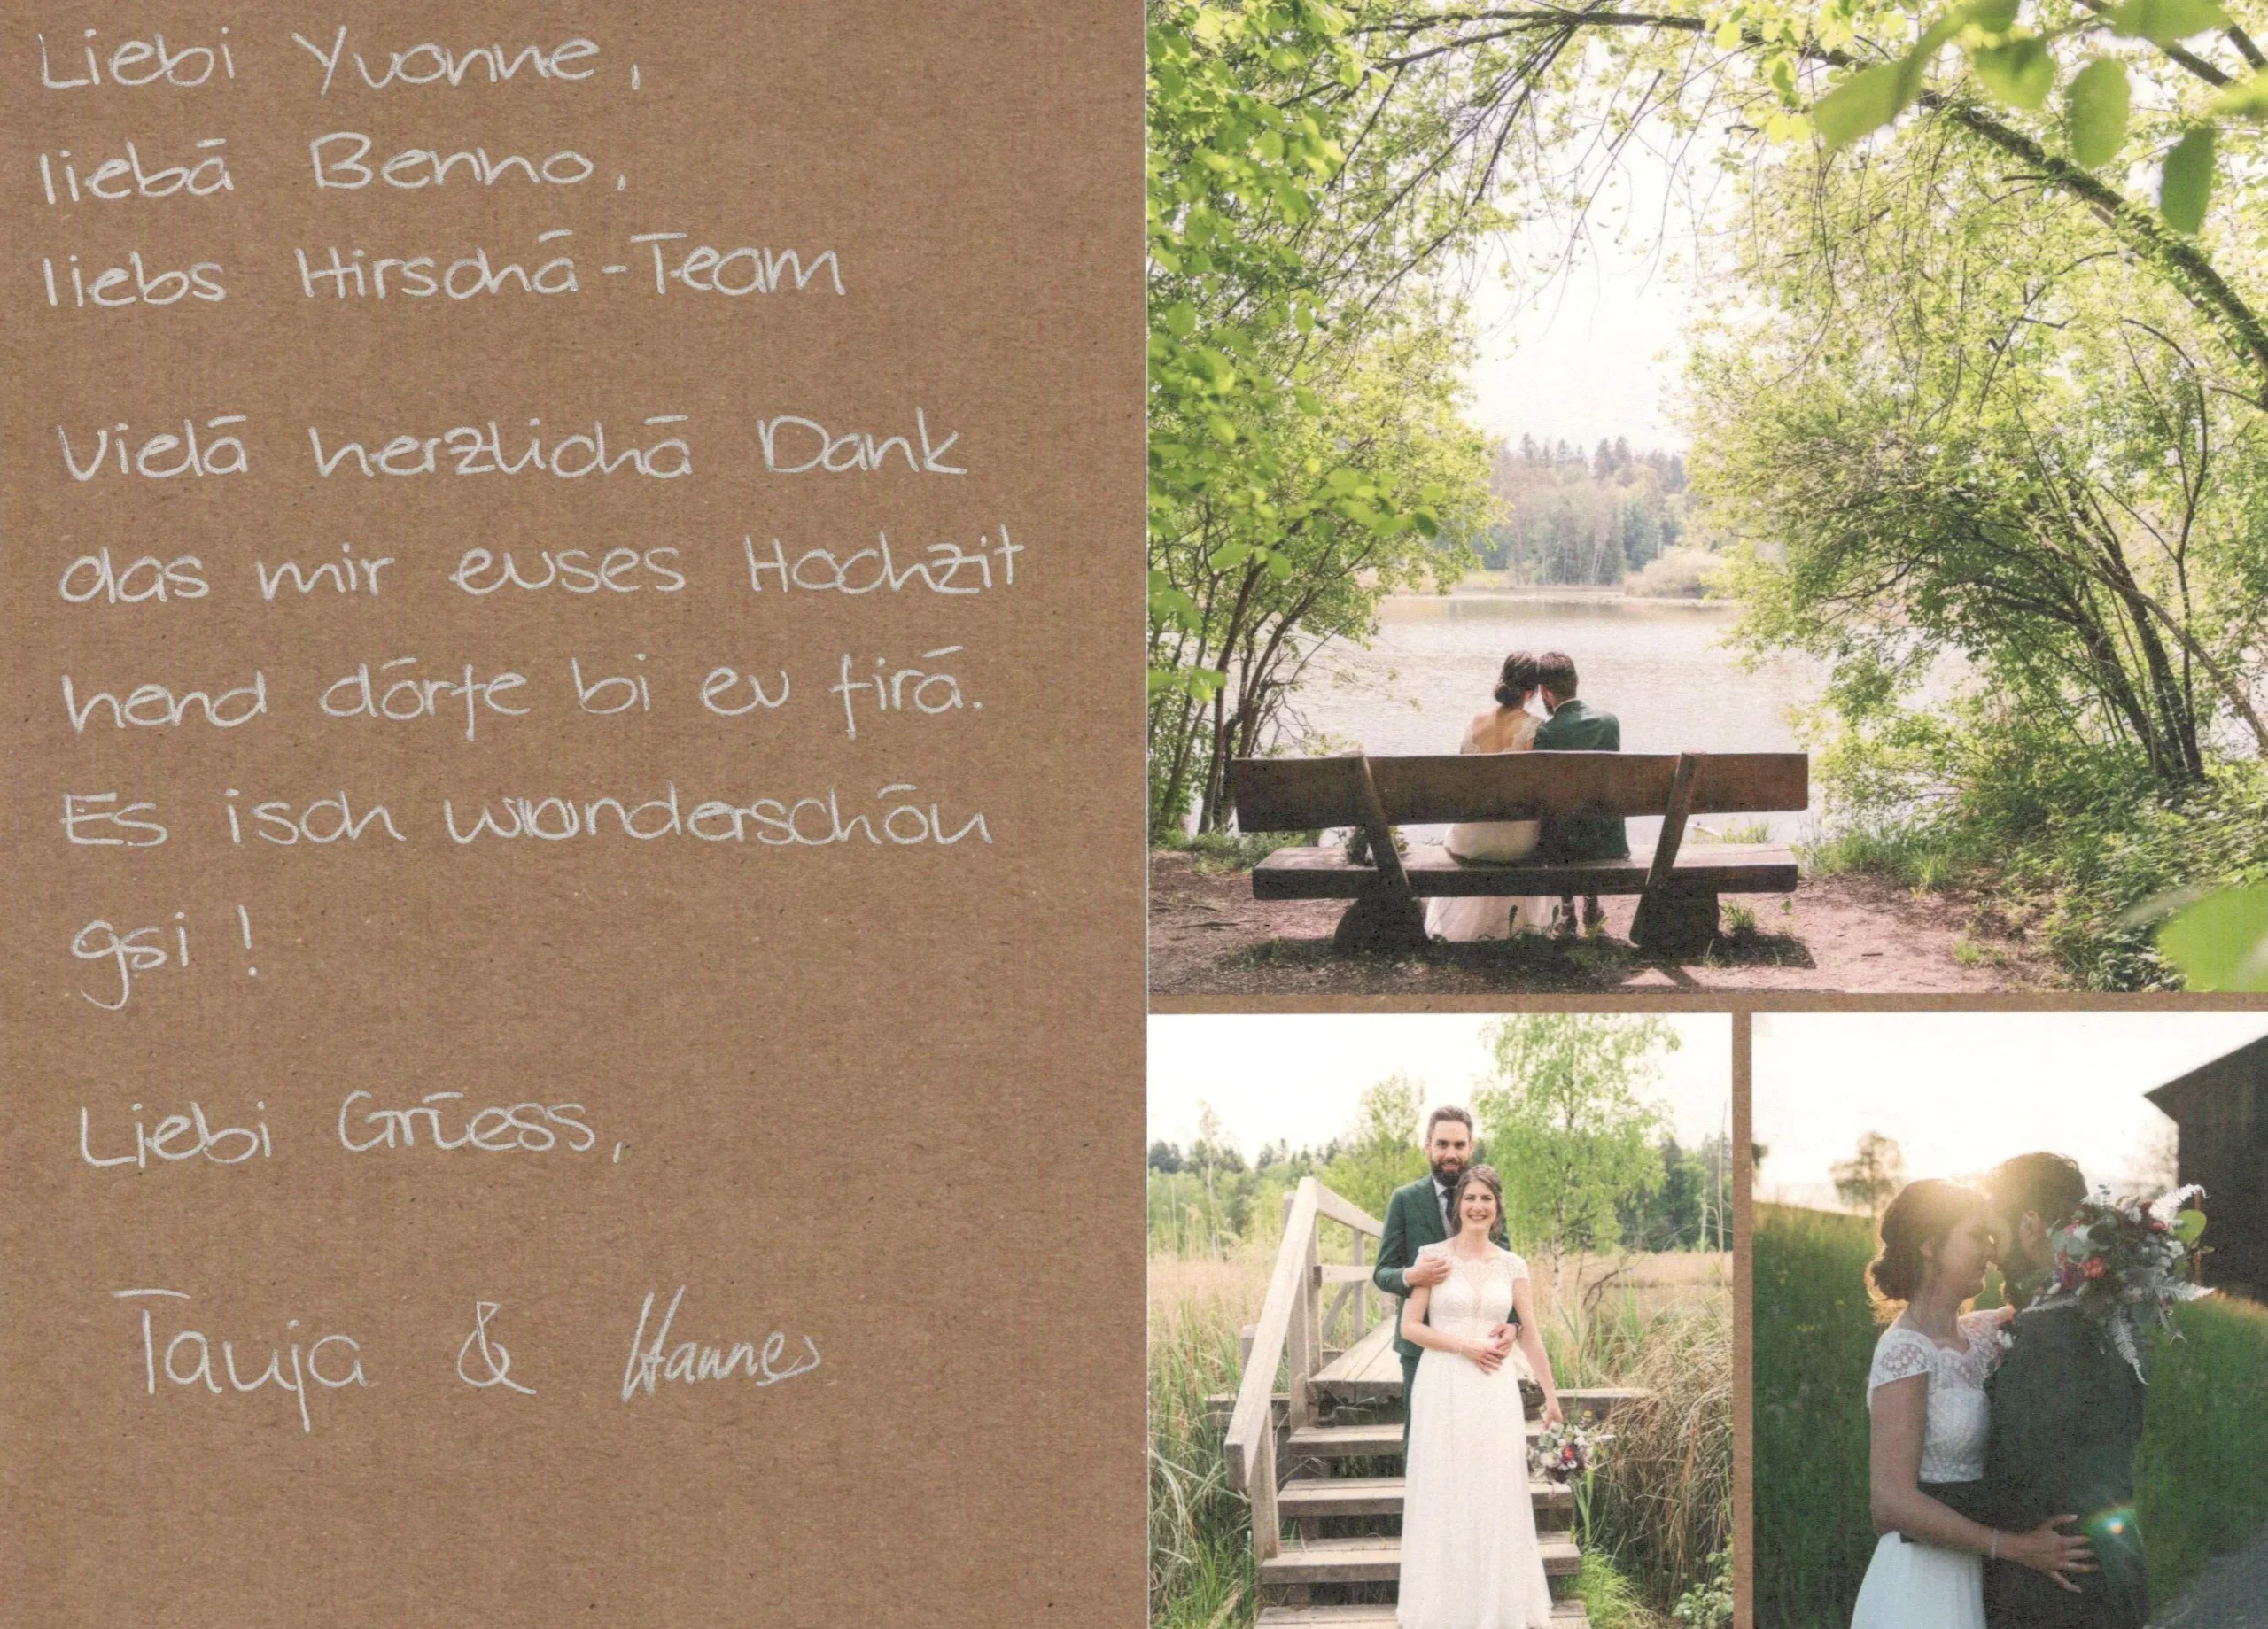 Liebi Yvonne,
liebä Benno,
liebs Hirschä-Team
Vielä herzlichä Dank
das mir euses Hochzit
hend dörfe bi eu firä.
Es isch wunderschön
gsi!
Liebi Grüess,
Tanja & Hannes